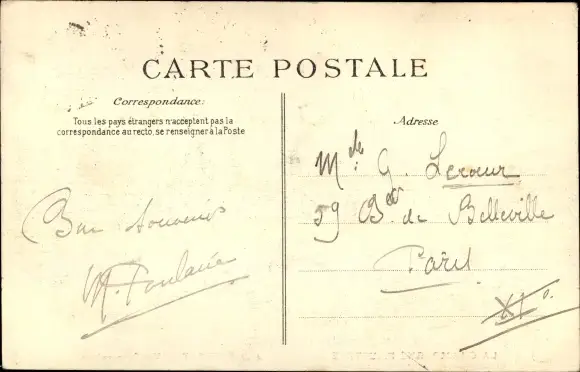 CARTE POSTALE
Correspondance:
Tous les pays étrangers n'acceptent pas la
correspondance au recto, se renseigner à la Poste
Bon souvenir
M. Foulanie
Adresse
Mlle G. Lecœur
59 Bd de Belleville
Paris
XI o.